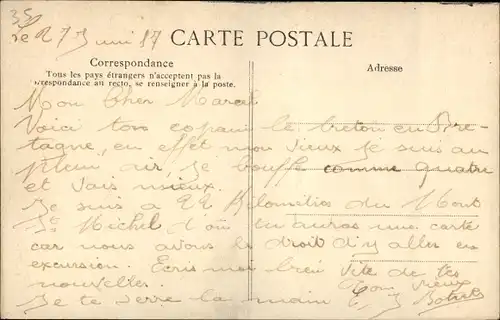 35
Le 27 Juin 17
CARTE POSTALE
Correspondance
Tous les pays étrangers n'acceptent pas la
correspondance au recto, se renseigner à la poste.
Adresse
Mon Cher Marcel
Voici ton copain le breton en Bre-
tagne, en effet mon vieux je suis au
plein air je bouffe comme quatre
et vais mieux.
Je suis a 22 Kilometres du Mont
St Michel d'où tu auras une carte
car nous avons le droit d'y aller en
excursion. Ecris moi bien vite de tes
nouvelles. Ton vieux
Je te serre la main